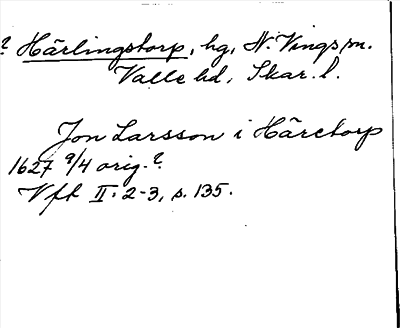 ? Härlingstorp, hg, N. Vings sn.
Valle hd, Skar. l.
Jon Larsson i Häretorp
1627 9/4 orig.?
Vft II: 2-3, s. 135.